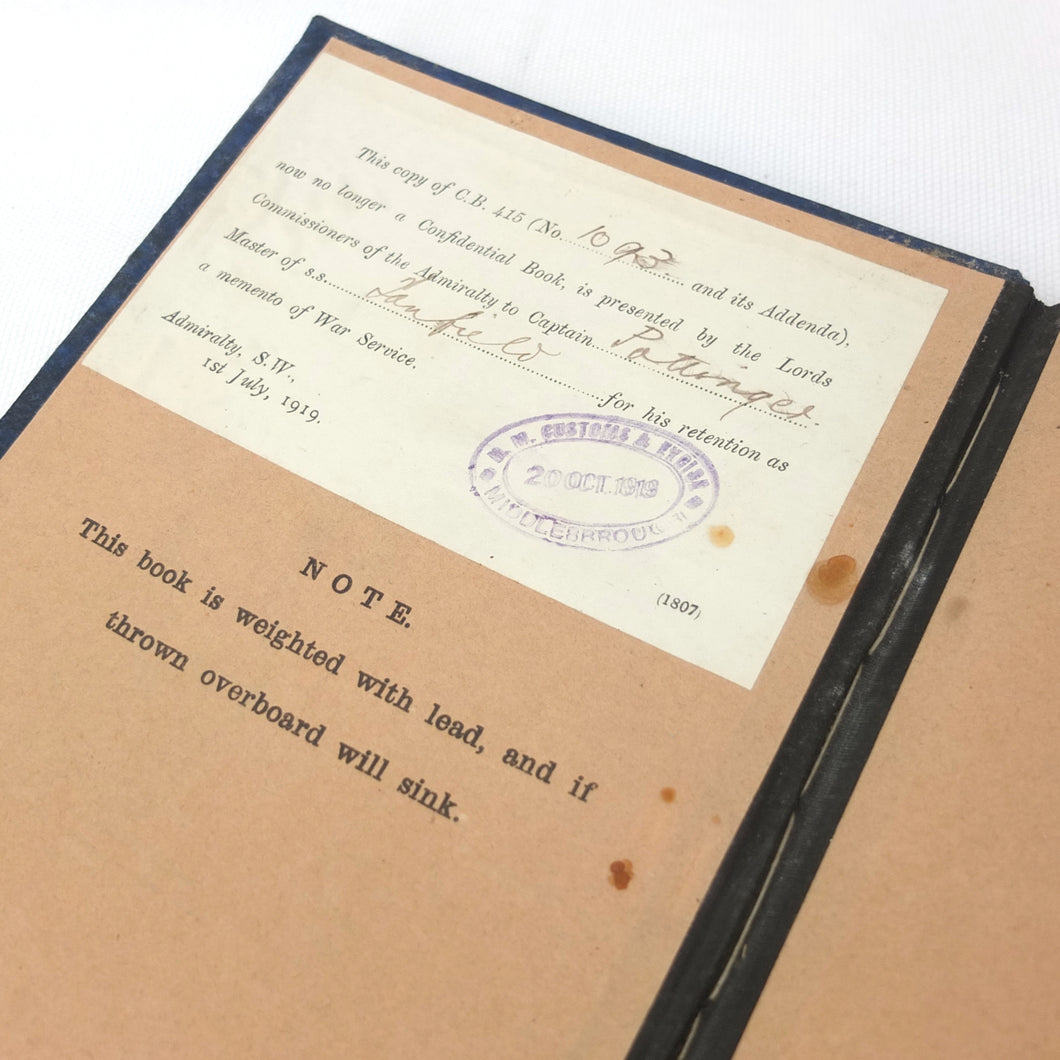 This copy of C.B. 415 (No. 1093 and its Addenda),
now no longer a Confidential Book, is presented by the Lords
Commissioners of the Admiralty to Captain Pottinger
Master of s.s. Tanfield for his retention as
a memento of War Service.
Admiralty, S.W.,
1st July, 1919.
H. M. CUSTOMS & EXCISE
20 OCT. 1919
MIDDLESBROUGH
(1807)
NOTE.
This book is weighted with lead, and if
thrown overboard will sink.